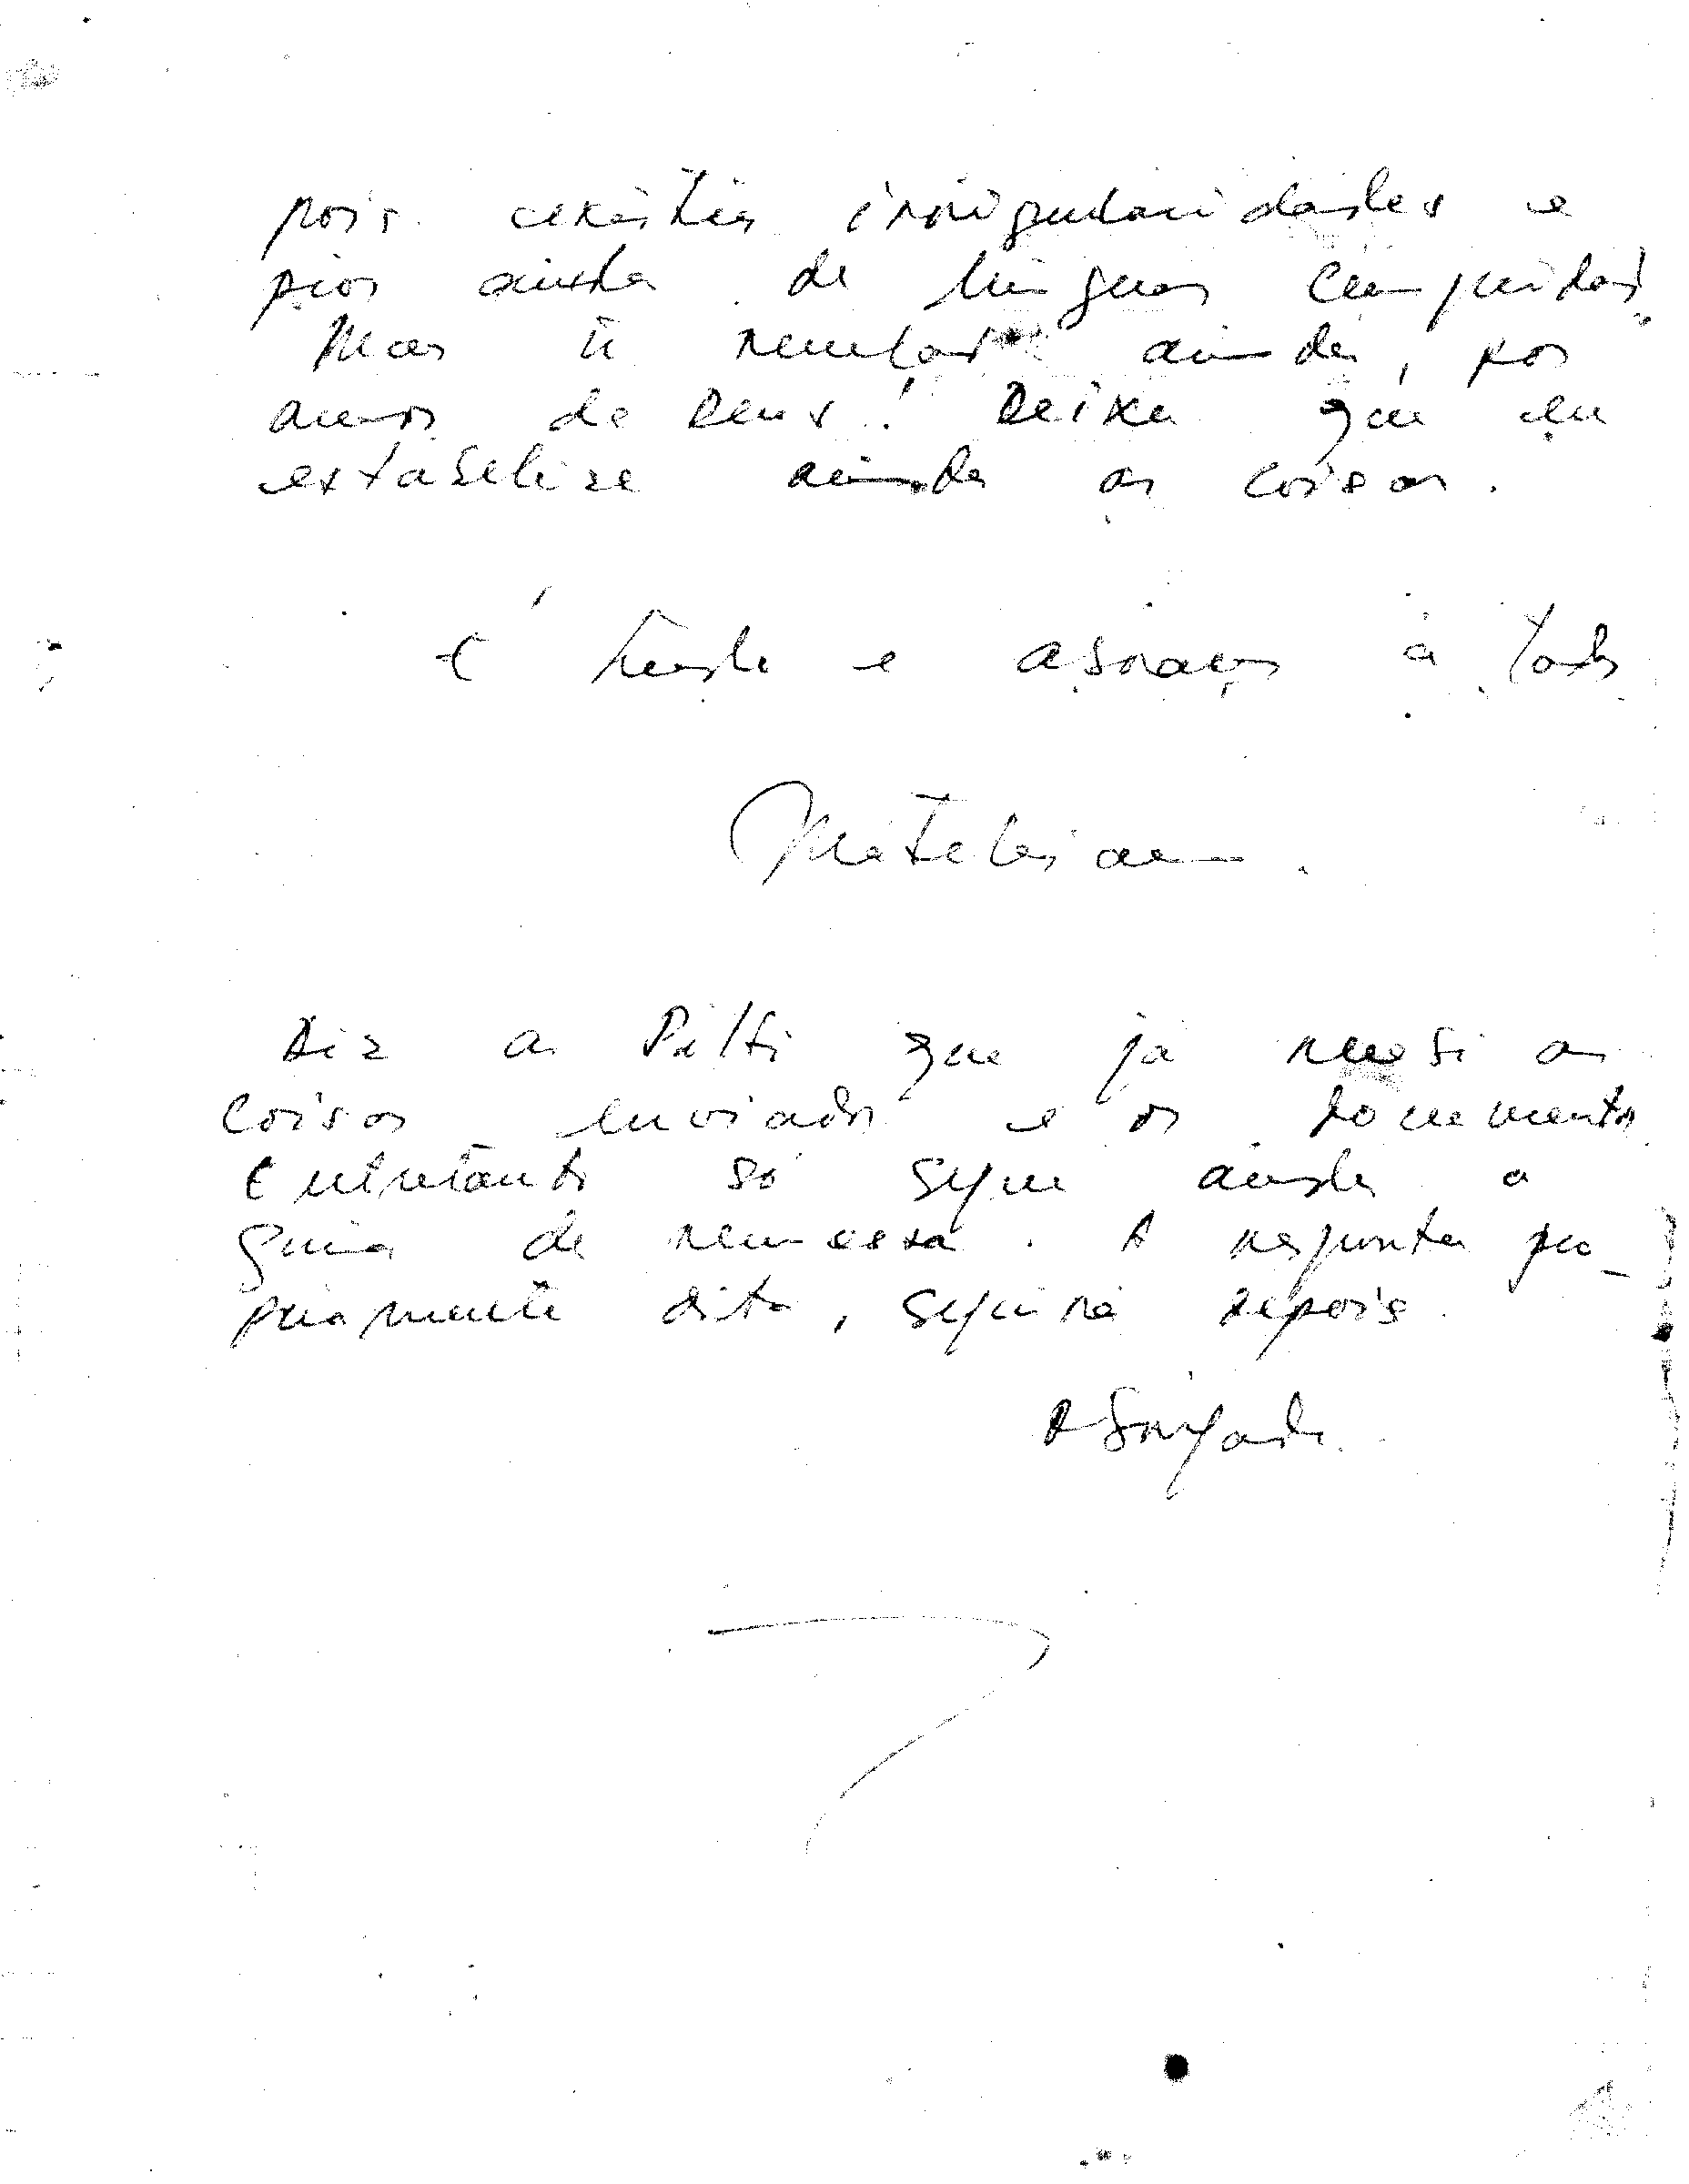 pois existia irregularidades e
pior ainda de linguas cumpridas
Mas ainda, por
amor de Deus! Deixa que eu
estabelise ainda as coisas.
É tudo e abraços à todos
Diz a que já recebi as
coisas enviadas e os documentos
Entretanto só segue ainda a
guia de remessa. A resposta pro_
priamente dita, seguirá depois.
Obrigado.